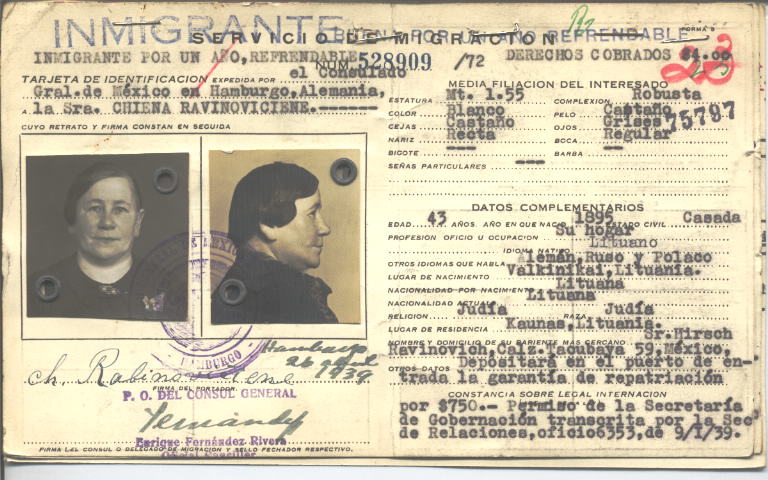 INMIGRANTE
SERVICIO DE MIGRACION
FORMA 5
INMIGRANTE POR UN AÑO, REFRENDABLE
NUM. 528909 /72
DERECHOS COBRADOS $4.00
23
TARJETA DE IDENTIFICACION EXPEDIDA POR el Consulado
Gral. de México en Hamburgo. Alemania,
a la Sra. CHIENA RAVINOVICIENE.-------
CUYO RETRATO Y FIRMA CONSTAN EN SEGUIDA
HAMBURGO
Hamburgo
26 abril
1939
ch. Rabinovičienė
FIRMA DEL PORTADOR
P. O. DEL CONSUL GENERAL
Fernández
Enrique Fernández Rivera
FIRMA DEL CONSUL O DELEGADO DE MIGRACION Y SELLO FECHADOR RESPECTIVO.
MEDIA FILIACION DEL INTERESADO
ESTATURA Mt. 1.55 COMPLEXION Robusta
COLOR Blanco PELO Castaño
CEJAS Castaño OJOS Grises
75797
NARIZ Recta BOCA Regular
BIGOTE --- BARBA ---
SEÑAS PARTICULARES ---
DATOS COMPLEMENTARIOS
EDAD 43 AÑOS. AÑO EN QUE NACIO 1895 ESTADO CIVIL Casada
PROFESION OFICIO U OCUPACION Su hogar
IDIOMA NATIVO Lituano
OTROS IDIOMAS QUE HABLA Alemán, Ruso y Polaco
LUGAR DE NACIMIENTO Valkinikai, Lituania.
NACIONALIDAD POR NACIMIENTO Lituana
NACIONALIDAD ACTUAL Lituana
RELIGION Judía RAZA Judía
LUGAR DE RESIDENCIA Kaunas, Lituania.
NOMBRE Y DOMICILIO DE SU PARIENTE MAS CERCANO Sr. Hirsch
Ravinovich, Calz. Tacubaya 59, México,
OTROS DATOS Depositará en el puerto de en-
trada la garantía de repatriación
CONSTANCIA SOBRE LEGAL INTERNACION
por $750.- Permiso de la Secretaría
de Gobernación transcrita por la Sec
de Relaciones, oficio 6353, de 9/I/39.